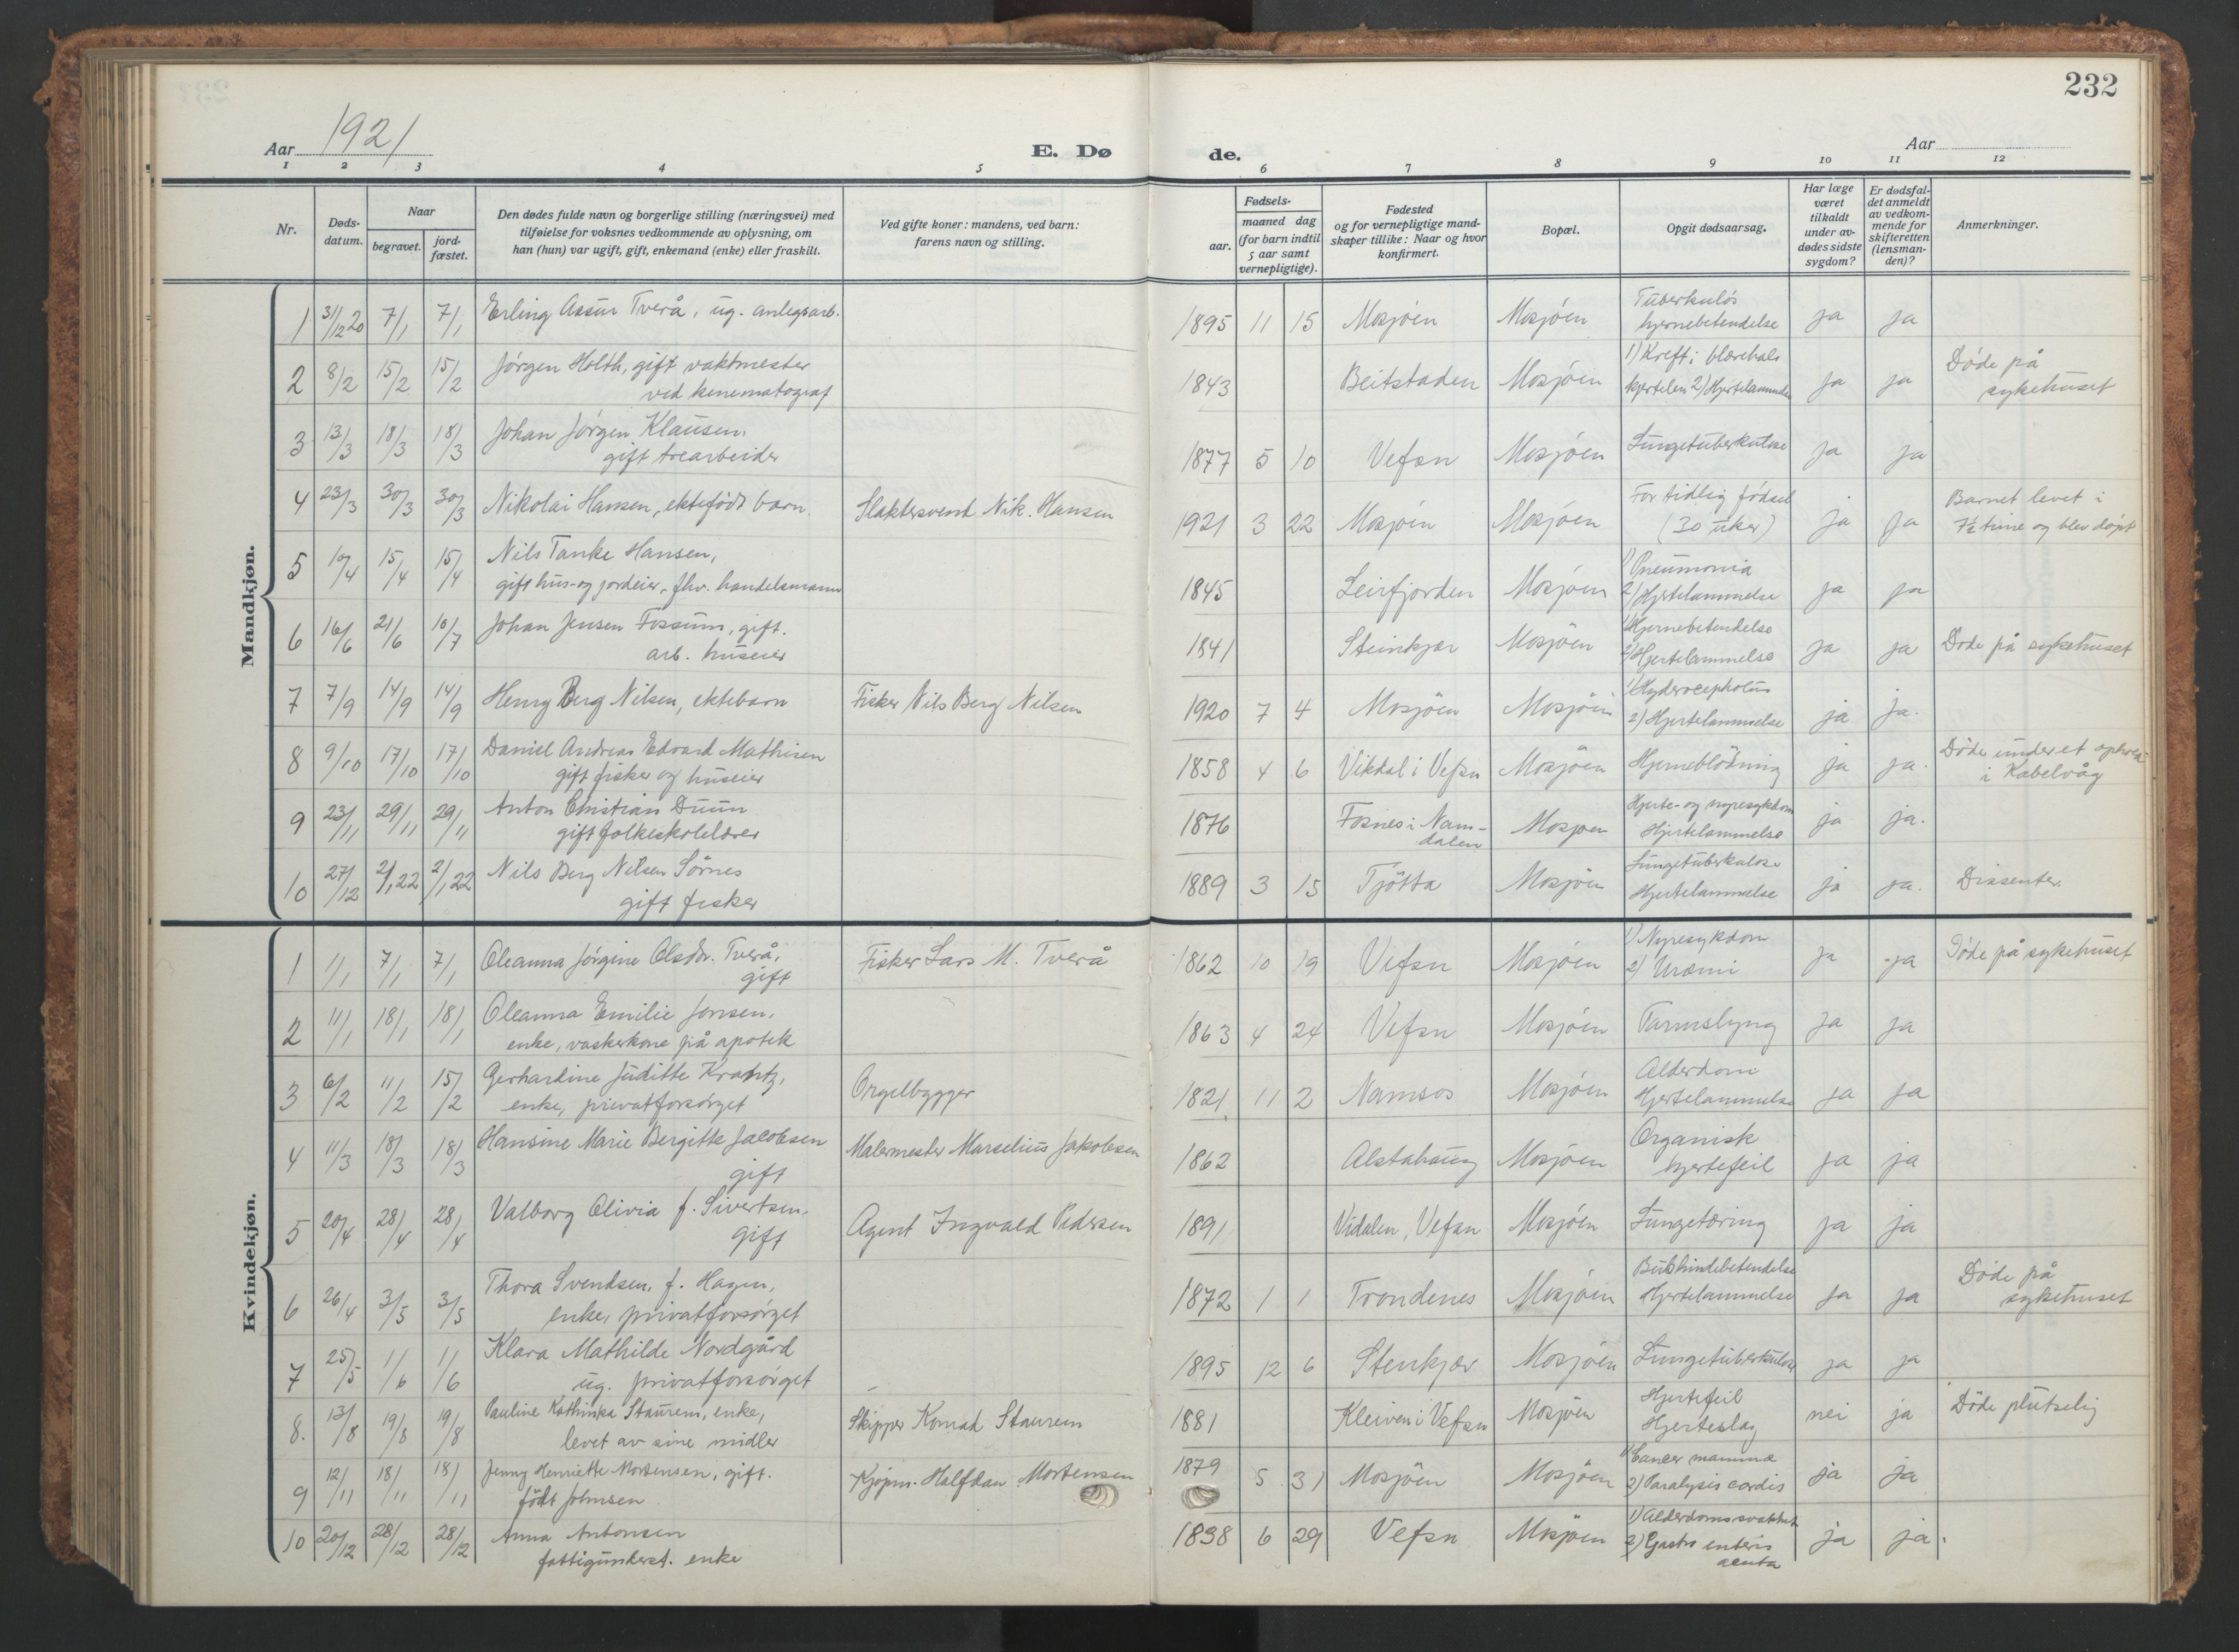 232
Aar 1921
E. Dø
de.
Aar
1 2 3 4 5 6 7 8 9 10 11 12
Nr.
Døds-
datum.
Naar
begravet.
jord-
fæstet.
Den dødes fulde navn og borgerlige stilling (næringsvei) med
tilføielse for voksnes vedkommende av oplysning, om
han (hun) var ugift, gift, enkemand (enke) eller fraskilt.
Ved gifte koner: mandens, ved barn:
farens navn og stilling.
Fødsels-
aar.
maaned dag
(for barn indtil
5 aar samt
vernepligtige).
Fødested
og for vernepligtige mand-
skaper tillike: Naar og hvor
konfirmert.
Bopæl.
Opgit dødsaarsag.
Har læge
været
tilkaldt
under av-
dødes sidste
sygdom?
Er dødsfal-
det anmeldt
av vedkom-
mende for
skifteretten
(lensman-
den)?
Anmerkninger.
Mandkjøn.
1 31/12 20 7/1 7/1 Erling Assur Tverå, ug. anlegsarb. 1895 11 15 Mosjöen Mosjöen Tuberkuløs
hjernebetendelse ja ja
2 8/2 15/2 15/2 Jörgen Holth, gift vaktmester
ved kenematograf 1843 Beitstaden Mosjöen 1) Kreft i blærehals
kjertelen 2) Hjertelammelse ja ja Döde på
sykehuset
3 13/3 18/3 18/3 Johan Jörgen Klausen,
gift trearbeider 1877 5 10 Vefsn Mosjöen Lungetuberkulose ja ja
4 23/3 30/3 30/3 Nikolai Hansen, ektefödt barn. Slaktersvend Nik. Hansen 1921 3 22 Mosjöen Mosjöen For tidlig födsel
(30 uker) ja ja Barnet levet i
7½ time og blev döpt
5 10/4 15/4 15/4 Nils Tanke Hansen,
gift hus- og jordeier, fhv. handelsmann 1845 Leirfjorden Mosjöen 1) Pneumonia
2) Hjertelammelse ja ja
6 16/6 21/6 10/7 Johan Jensen Fossum, gift.
arb. huseier 1841 Steinkjær Mosjöen 1) Hjernebetendelse
2) Hjertelammelse ja ja Döde på sykehuset
7 7/9 14/9 14/9 Henry Berg Nilsen, ektebarn Fisker Nils Berg Nilsen 1920 7 4 Mosjöen Mosjöen 1) Hyderocepholus
2) Hjertelammelse ja ja.
8 9/10 17/10 17/10 Daniel Andreas Edvard Mathisen
gift fisker og huseier 1858 4 6 Vikdal i Vefsn Mosjöen Hjerneblödning ja ja. Döde under et ophold
i Kabelvåg
9 23/11 29/11 29/11 Anton Christian Duun
gift folkeskolelærer 1876 Fosnes i Nam-
dalen Mosjöen Hjerte- og nyresykdom
Hjertelammelse ja ja.
10 27/12 2/1 22 2/1 22 Nils Berg Nilsen Sörnes
gift fisker 1889 3 15 Tjötta Mosjöen Lungetuberkulose
Hjertelammelse ja ja. Dissenter.
Kvindekjøn.
1 1/1 7/1 7/1 Oleanna Jörgine Olsdtr. Tverå,
gift Fisker Lars M. Tverå 1862 10 19 Vefsn Mosjöen 1) Nyresykdom
2) Uræmi ja ja Döde på sykehuset
2 11/1 18/1 18/1 Oleanna Emilie Jensen,
enke, vaskerkone på apotek 1863 4 24 Vefsn Mosjöen Tarmslyng ja ja
3 6/2 11/2 15/2 Gerhardine Juditte Krantz,
enke, privatforsörget Orgelbygger 1821 11 2 Namsos Mosjöen Alderdom
Hjertelammelse ja ja
4 11/3 18/3 18/3 Hansine Marie Bergitte Jacobsen
gift Malermester Marselius Jakobsen 1862 Alstahaug Mosjöen Organisk
hjertefeil ja ja
5 20/4 28/4 28/4 Valborg Olivia f. Sivertsen,
gift Agent Ingvald Pedersen 1891 Vidalen, Vefsn Mosjöen Lungetæring ja ja
6 26/4 3/5 3/5 Thora Svendsen, f. Hagen,
enke, privatforsörget 1872 1 1 Trondenes Mosjöen Bukhindebetendelse
Hjertelammelse ja ja Döde på
sykehuset
7 25/5 1/6 1/6 Klara Mathilde Nordgård
ug. privatforsörget 1895 12 6 Stenkjær Mosjöen Lungetuberkulose ja ja
8. 13/8 19/8 19/8 Pauline Kathinka Staurem, enke,
levet av sine midler Skipper Konrad Staurem 1881 Kleiven i Vefsn Mosjöen Hjertefeil
Hjerteslag nei ja Döde plutselig
9 12/11 18/11 18/11 Jenny Henriette Mortensen, gift.
födt Johnsen Kjöpm. Halfdan Mortensen 1879 5 31 Mosjöen Mosjöen 1) Cancer mammæ
2) Paralysis cordis ja ja
10 20/12 28/12 28/12 Anna Antonsen
fattigunderst. enke 1838 6 29 Vefsn Mosjöen 1) Alderdomssvakhet
2) Gastro enteris
acuta ja ja.